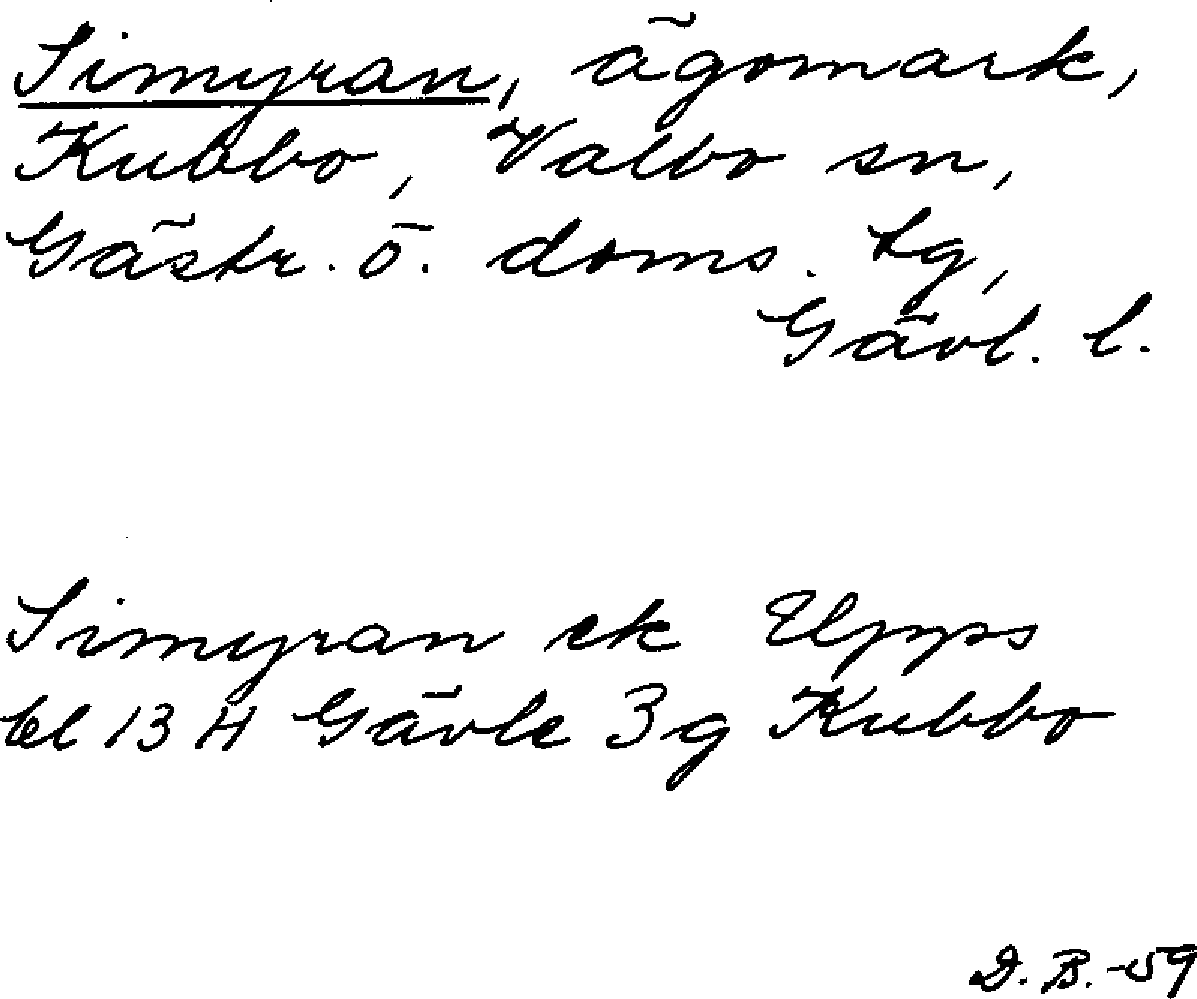 Simyran, ägomark,
Kubbo, Valbo sn,
Gästr. ö. doms. tg,
Gävl. l.
Simyran ek Upps
bl 13 H Gävle 3g Kubbo
D. B. -59